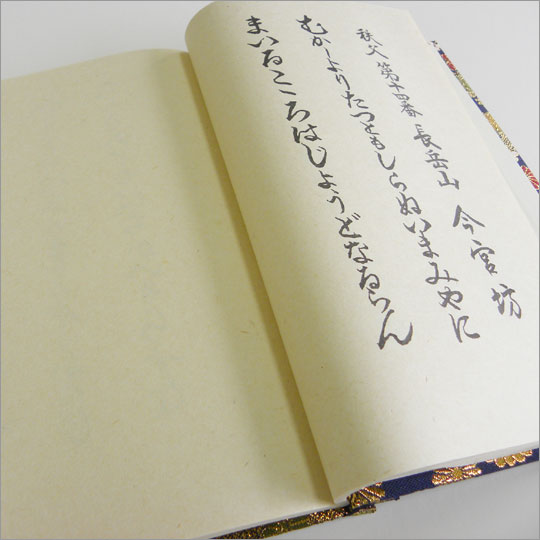 秩父第十四番 長岳山 今宮坊
むかしよりたつともしらぬいまみやに
まいるこころはじようどなるらん